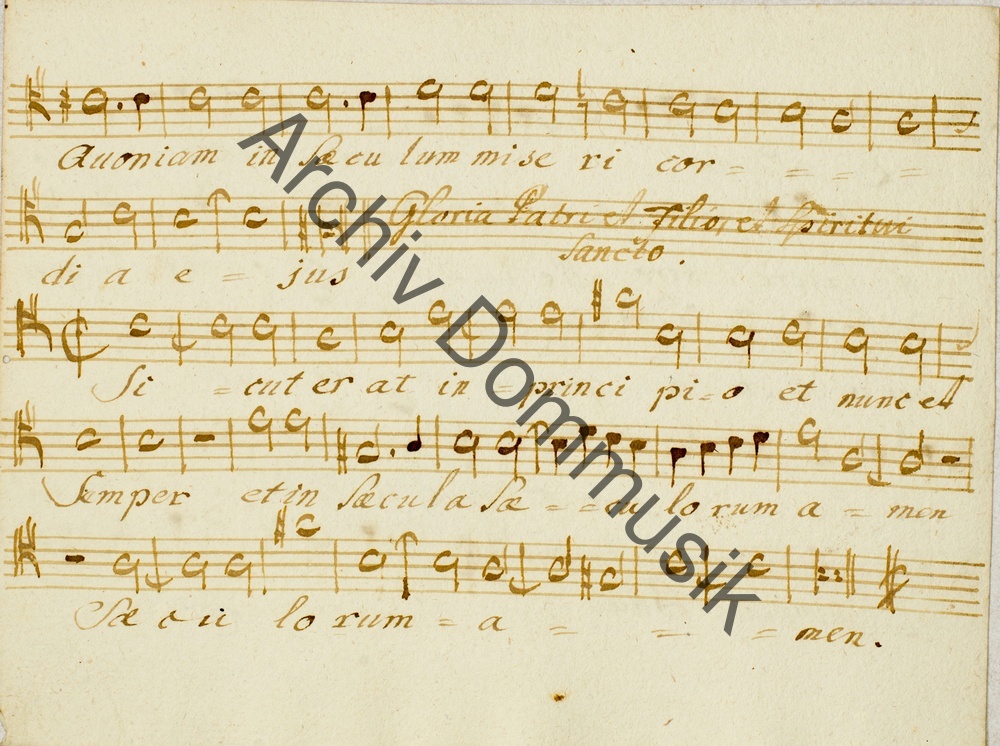 Quoniam in Sæcu lum mise ri cor = = = =
Gloria Patri et Filio, et Spiritui
Sancto.
di a e = jus
Si = cut er at in = princi pi = o et nunc et
Semper et in Sæcula Sæ = = cu lo rum a = men
Sæ c u lo rum = a = = = men.
Archiv Dommusik